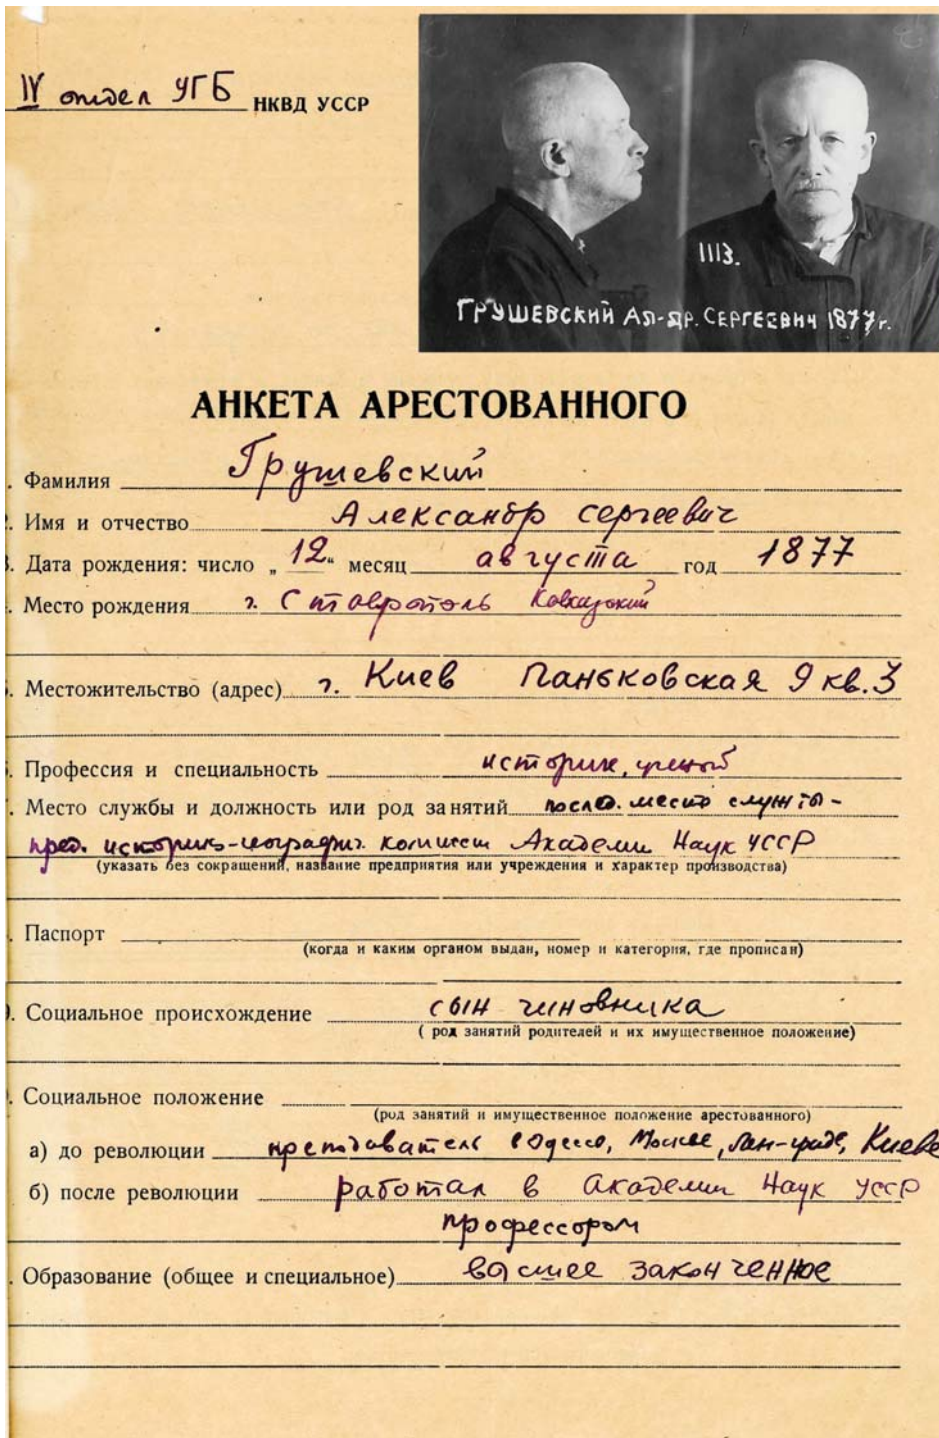 IV отдел УГБ НКВД УССР
1113.
ГРУШЕВСКИЙ АЛ-ДР. СЕРГЕЕВИЧ 1877 г.
АНКЕТА АРЕСТОВАННОГО
. Фамилия Грушевский
. Имя и отчество Александр Сергеевич
. Дата рождения: число „12“ месяц августа год 1877
. Место рождения г. Ставрополь Кавказский
. Местожительство (адрес) г. Киев Паньковская 9 кв. 3
. Профессия и специальность историк, ученый
. Место службы и должность или род занятий послед. место службы -
пред. историко-географич. комиссии Академии Наук УССР
(указать без сокращений, название предприятия или учреждения и характер производства)
. Паспорт
(когда и каким органом выдан, номер и категория, где прописан)
. Социальное происхождение сын чиновника
( род занятий родителей и их имущественное положение)
. Социальное положение
(род занятий и имущественное положение арестованного)
а) до революции преподаватель в Одессе, Москве, Лен-граде, Киеве
б) после революции работал в Академии Наук УССР
профессором
. Образование (общее и специальное) высшее законченное